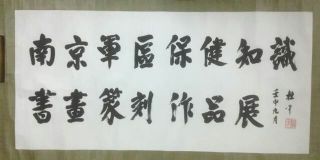 南京軍區保健知識
書畫篆刻作品展
壬申九月